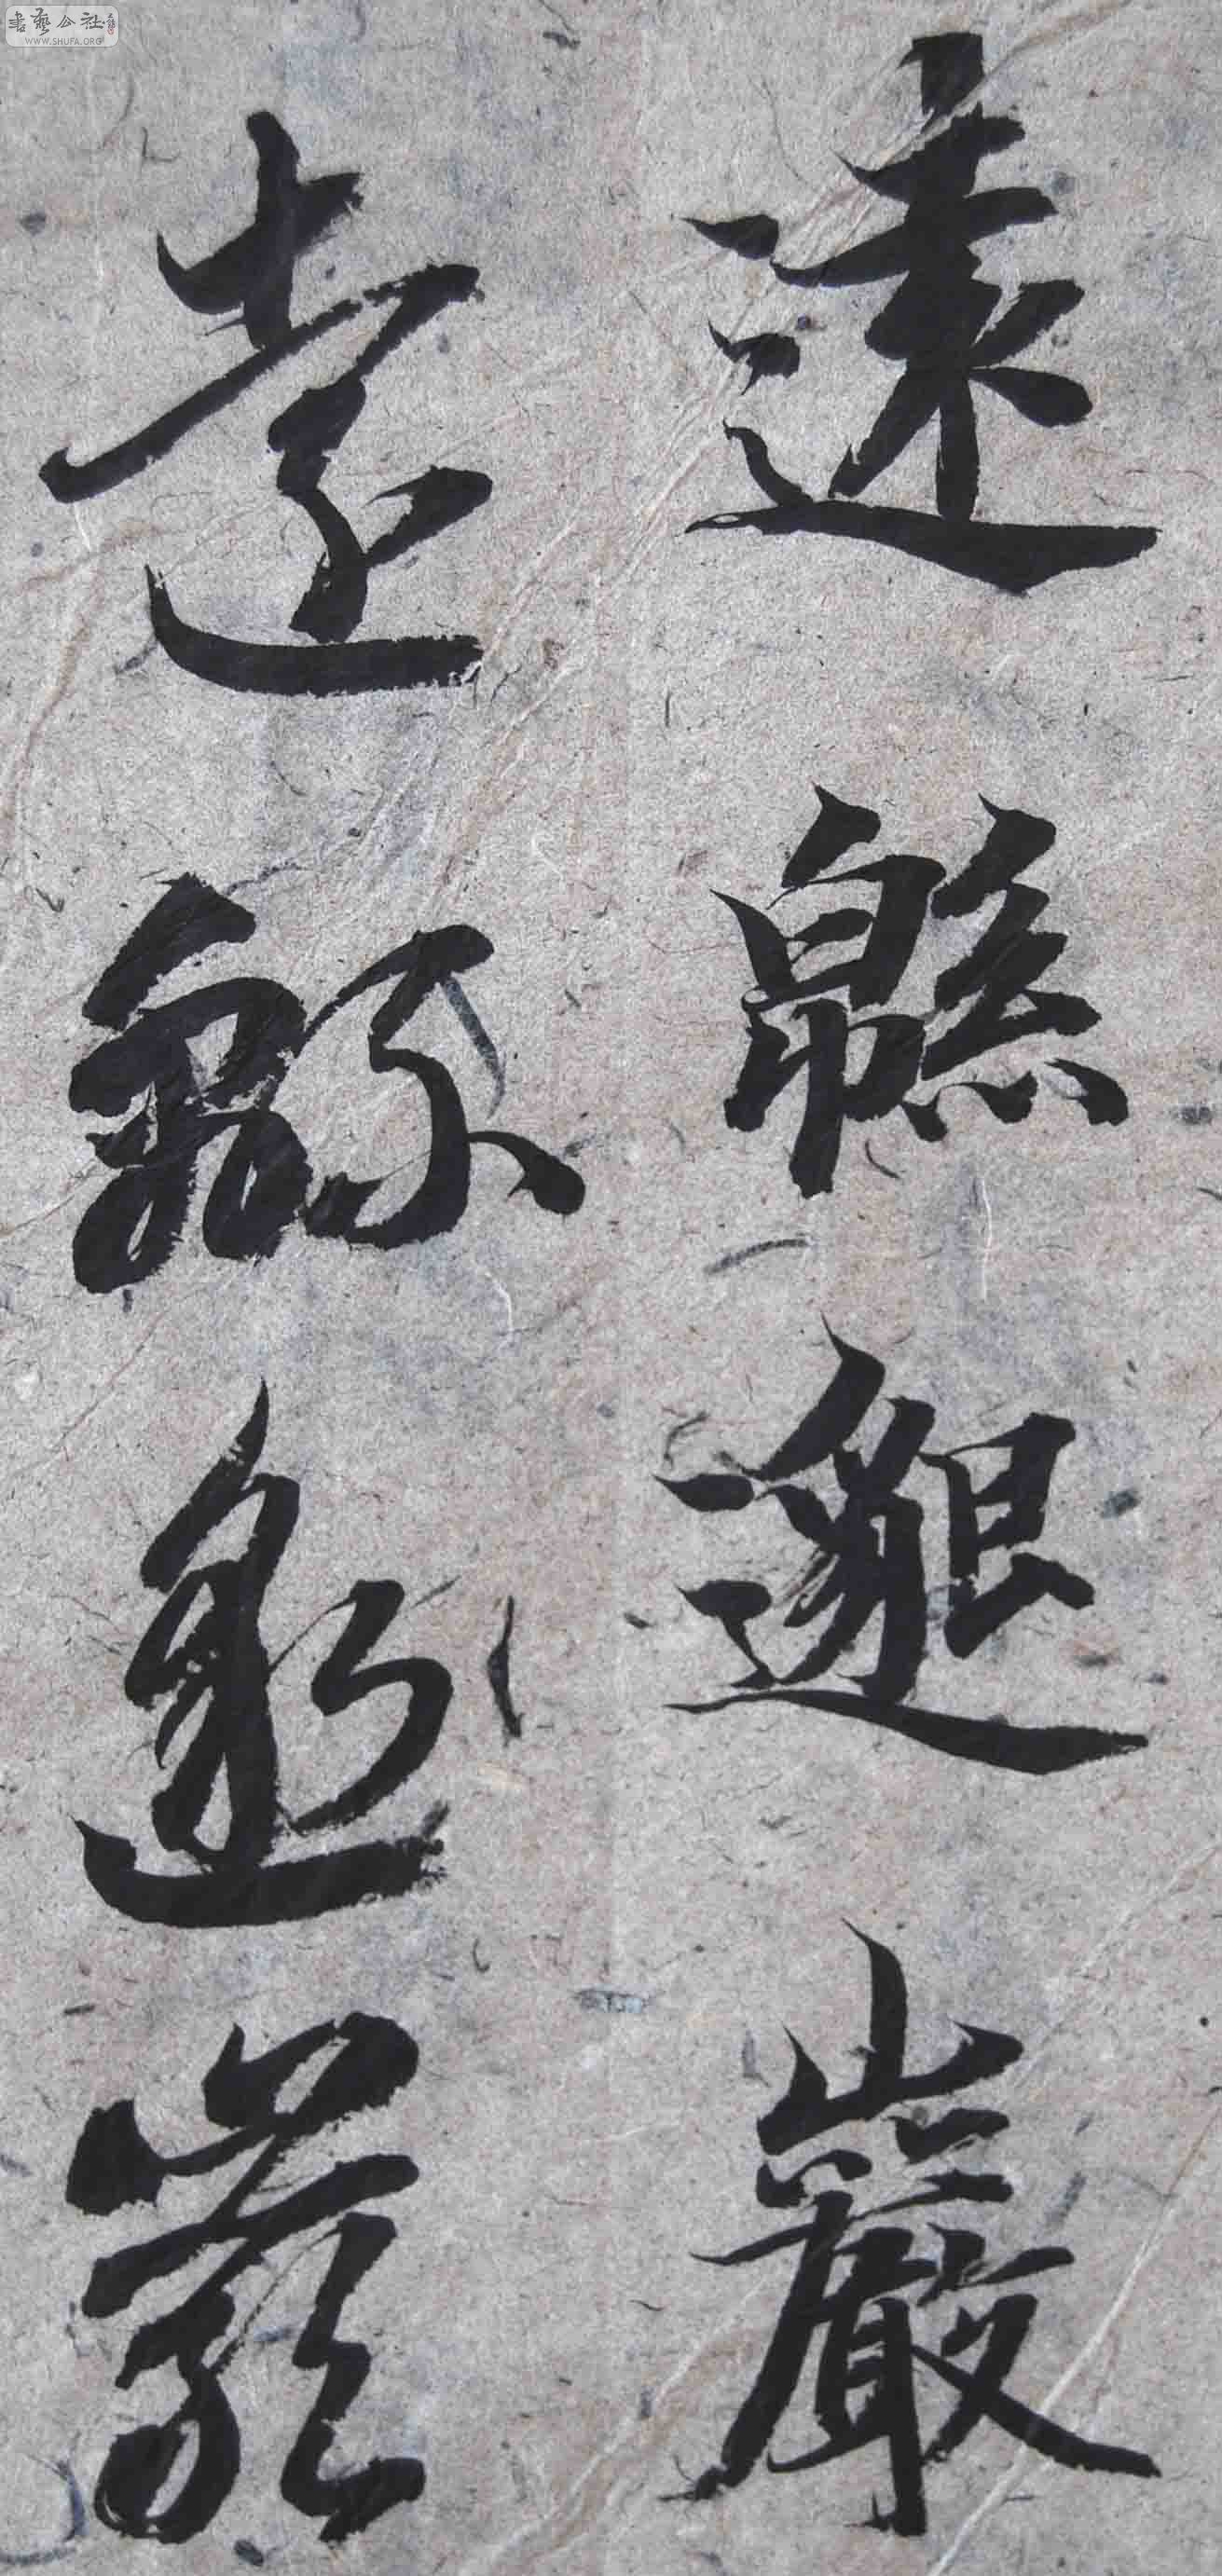 遠緜邈巖
遠緜邈巖
書藝公社
WWW.SHUFA.ORG